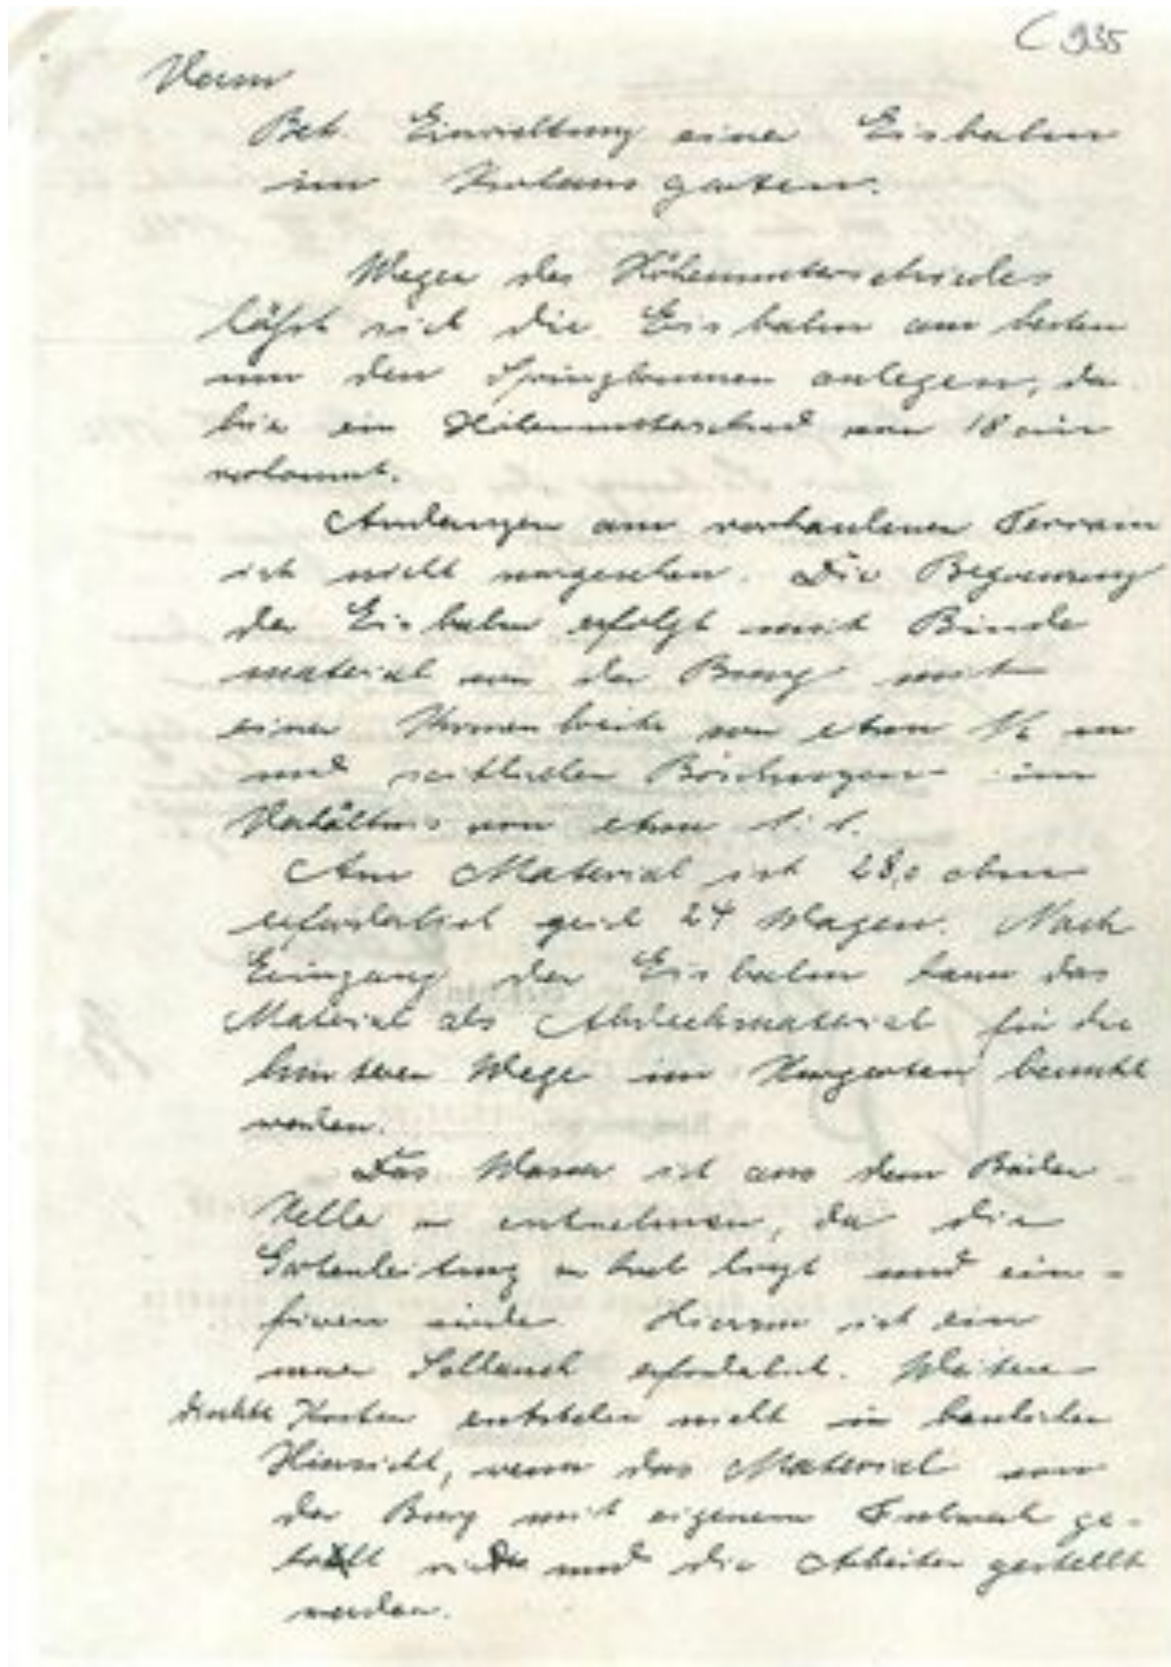 C 935
Verm
Bet. Einrichtung einer Eisbahn
im Kurhausgarten.
Wegen des Höhenunterschiedes
läßt sich die Eisbahn am besten
um den Springbrunnen anlegen, da
hier ein Höhenunterschied von 18 cm
vorkommt.
Änderungen am vorhandenen Terrain
ist nicht vorgesehen. Die Begrenzung
der Eisbahn erfolgt mit Binde
material von der Burg mit
einer Kronenbreite von etwa ½ m
und seitlichen Böschungen im
Verhältnis von etwa 1:1.
An Material ist 28,0 cbm
erforderlich gleich 24 Wagen. Nach
Eingang der Eisbahn kann das
Material als Abdeckmaterial für die
hinteren Wege im Kurgarten benutzt
werden.
Das Wasser ist aus dem Bäder
Keller zu entnehmen, da die
Gartenleitung zu hoch liegt und ein-
frieren würde. Hierzu ist ein
neuer Schlauch erforderlich. Weitere
direkte Kosten entstehen nicht in baulicher
Hinsicht, wenn das Material von
der Burg mit eigenem Fuhrwerk ge-
holt wird und die Arbeiter gestellt
werden.